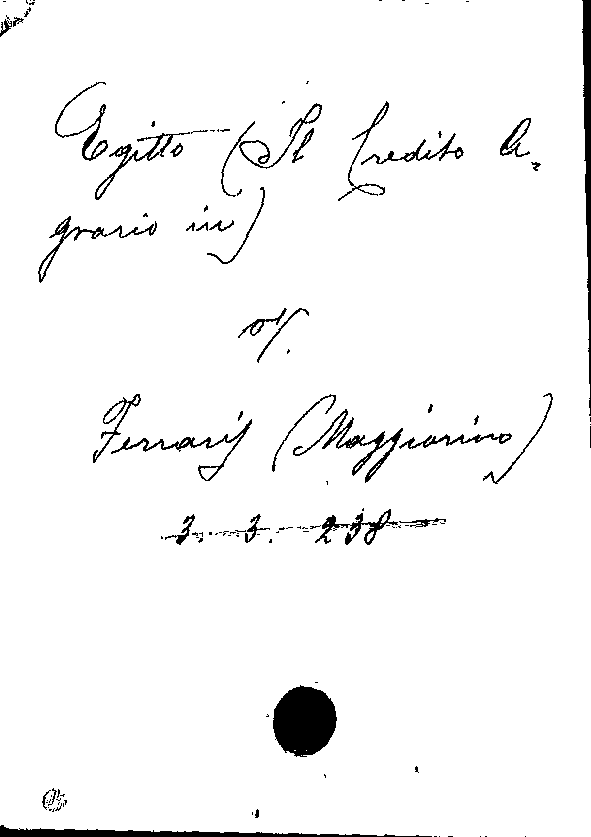 Egitto (Il Credito A-
grario in)
v.
Ferraris (Maggiorino)
3. 3. 238